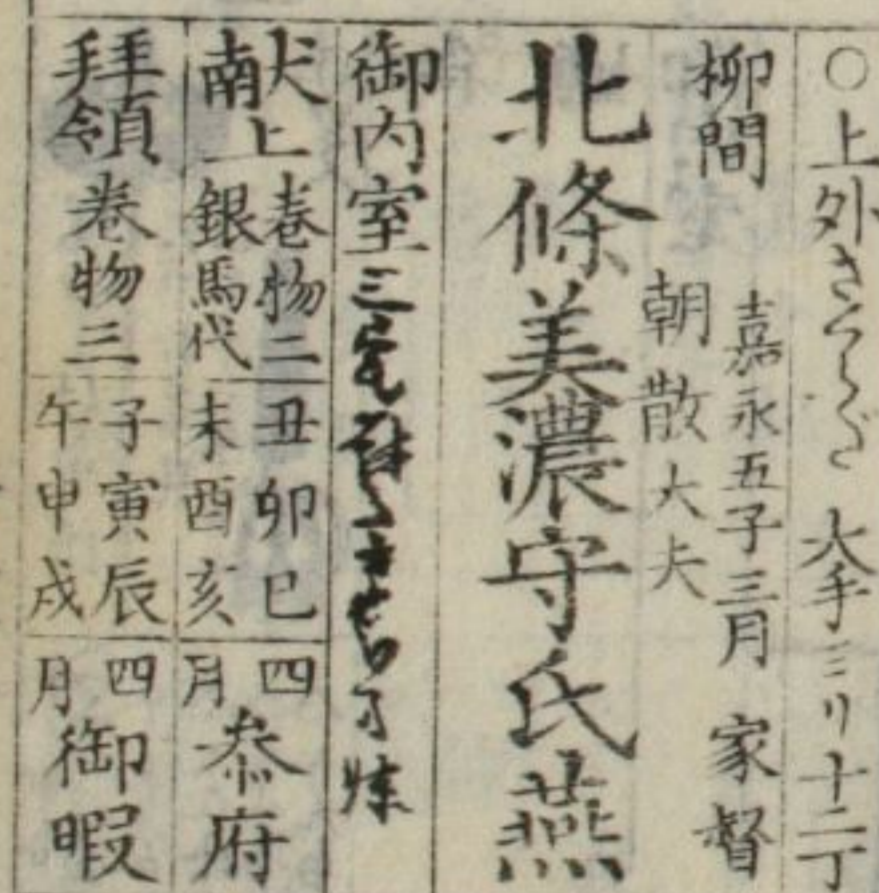 ○上外さくらだ 大手ヨリ十二丁
柳間
嘉永五子三月 家督
朝散大夫
北條美濃守氏燕
御内室三宅
妹
献上 巻物二 銀馬代
丑卯巳未酉亥
四月 参府
拝領 巻物三
子寅辰午申戌
四月 御暇